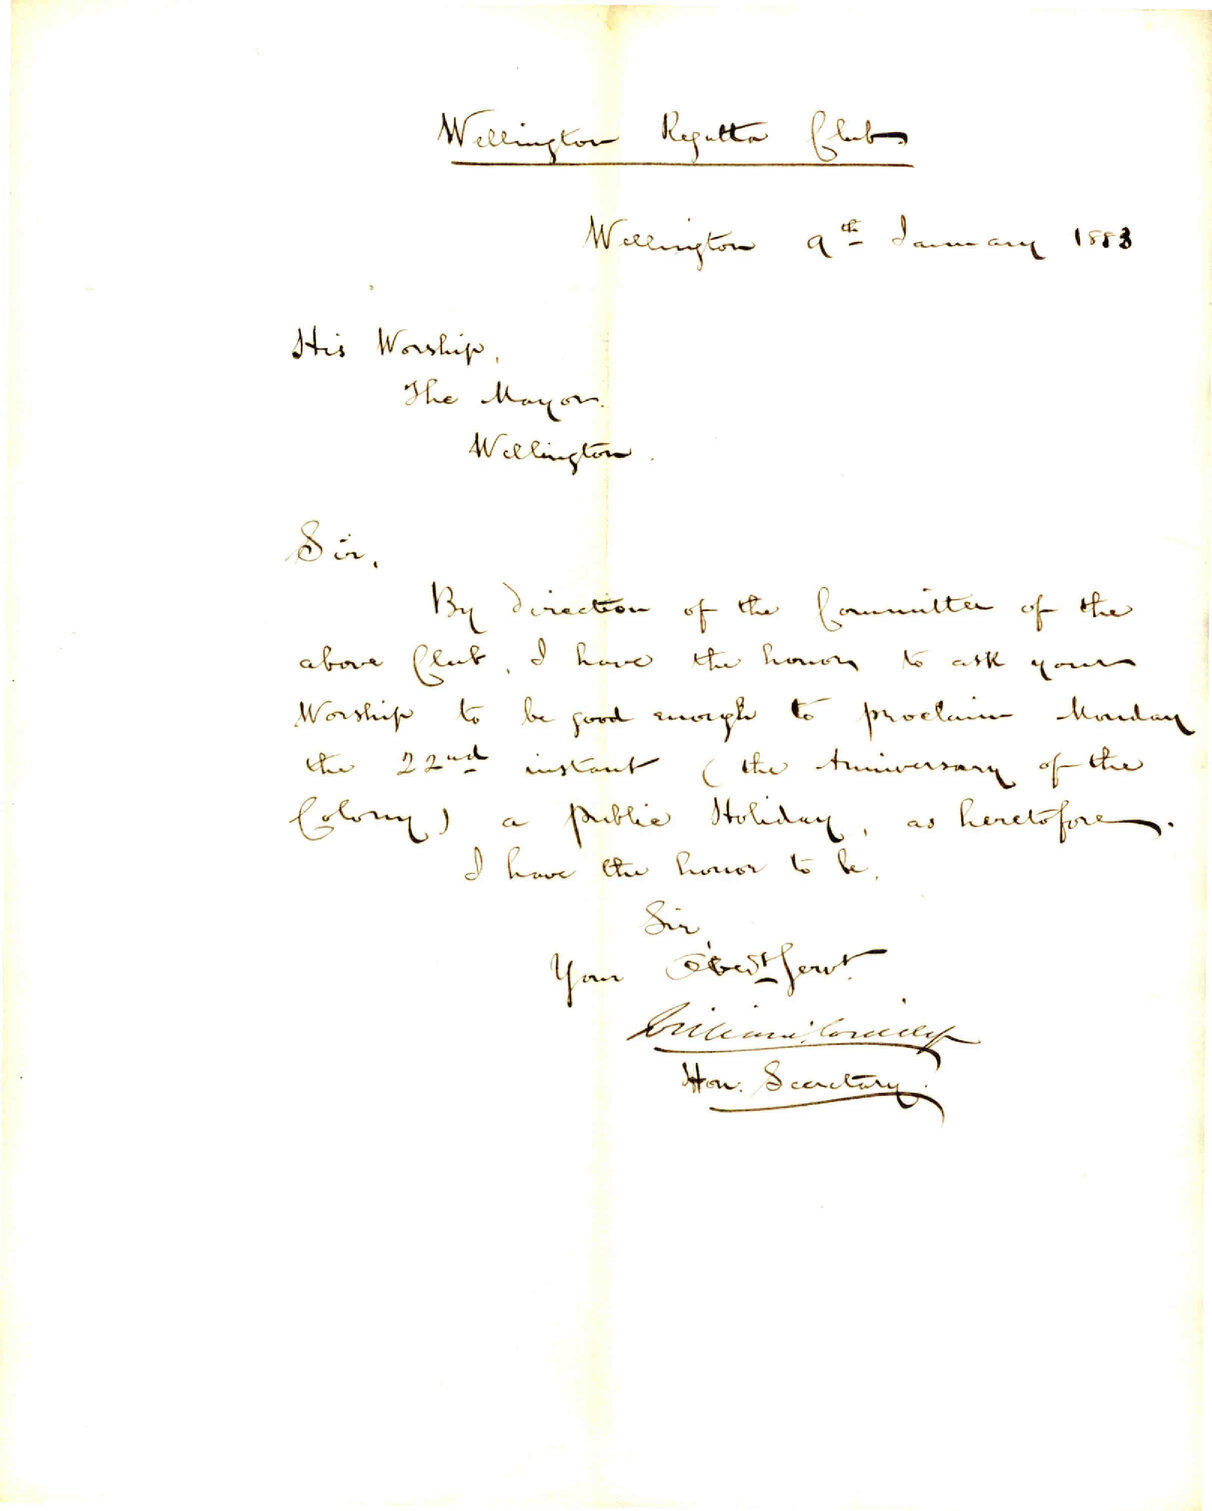 Wellington Regatta Club
Wellington 9th January 1883
His Worship,
The Mayor.
Wellington.
Sir,
By direction of the Committee of the
above Club, I have the honor to ask your
Worship to be good enough to proclaim Monday
the 22nd instant (the Anniversary of the
Colony) a public Holiday, as heretofore.
I have the honor to be,
Sir,
Your Obedt Servt.
William
Hon: Secretary.